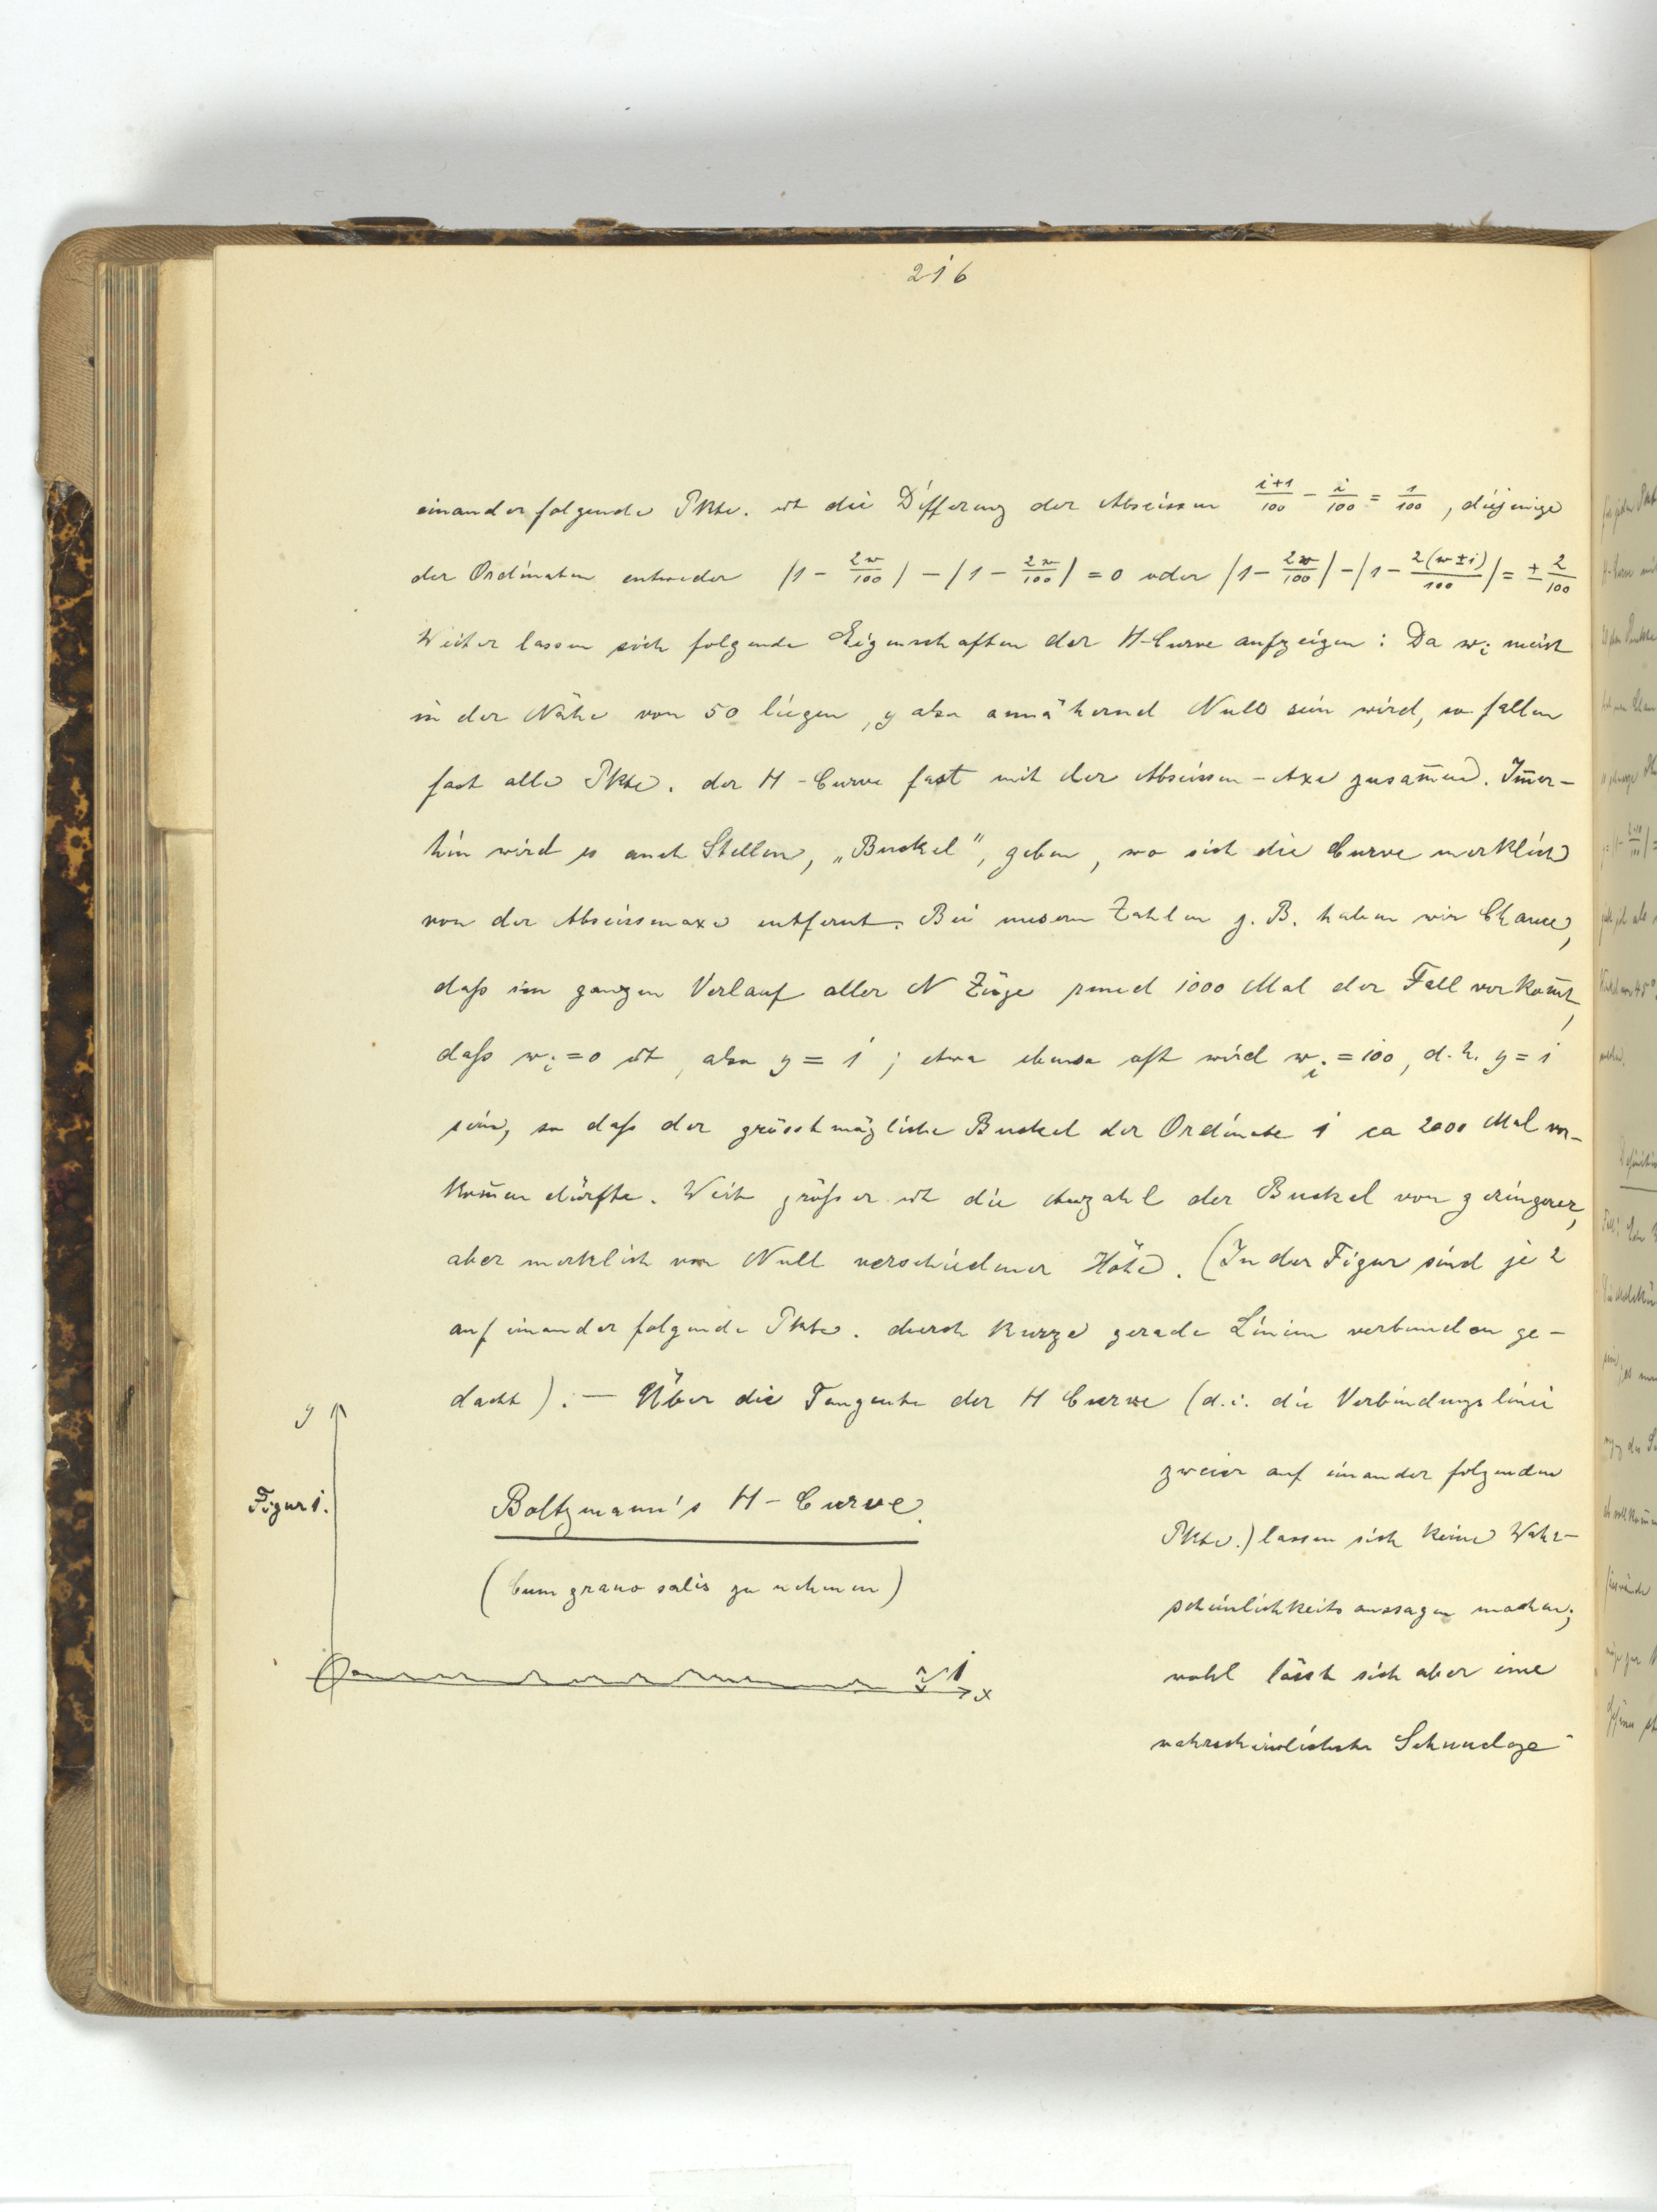 216
einander folgende Pkte. ist die Differenz der Abscissen (i+1)/100 − i/100 = 1/100, diejenige
der Ordinaten entweder |1 − 2w/100| − |1 − 2w/100| = 0 oder |1 − 2w/100| − |1 − 2(w±1)/100| = ± 2/100
Weiter lassen sich folgende Eigenschaften der H-Curve aufzeigen: Da wᵢ meist
in der Nähe von 50 liegen, y also annähernd Null sein wird, so fallen
fast alle Pkte. der H-Curve fast mit der Abscissen-Axe zusam̄en. Im̄er-
hin wird es auch Stellen, „Buckel", geben, wo sich die Curve merklich
von der Abscissenaxe entfernt. Bei unsern Zahlen z. B. haben wir Chance,
daß im ganzen Verlauf aller N Züge rund 1000 Mal der Fall vorkom̄t,
daß wᵢ = 0 ist, also y = 1; etwa ebenso oft wird wᵢ = 100, d. h. y = 1
sein, so daß der grösstmögliche Buckel der Ordinate 1 ca 2000 Mal vor-
kom̄en dürfte. Weit größer ist die Anzahl der Buckel von geringerer,
aber merklich von Null verschiedener Höhe. (In der Figur sind je 2
auf einander folgende Pkte. durch kurze gerade Linien verbunden ge-
dacht). — Über die Tangente der H Curve (d. i. die Verbindungslinie
zweier auf einander folgenden
Pkte.) lassen sich keine Wahr-
scheinlichkeitsaussagen machen;
wohl lässt sich aber eine
wahrscheinlichste
y
Figur 1.
Boltzmann's H-Curve.
(Cum grano salis zu nehmen)
0
1
x